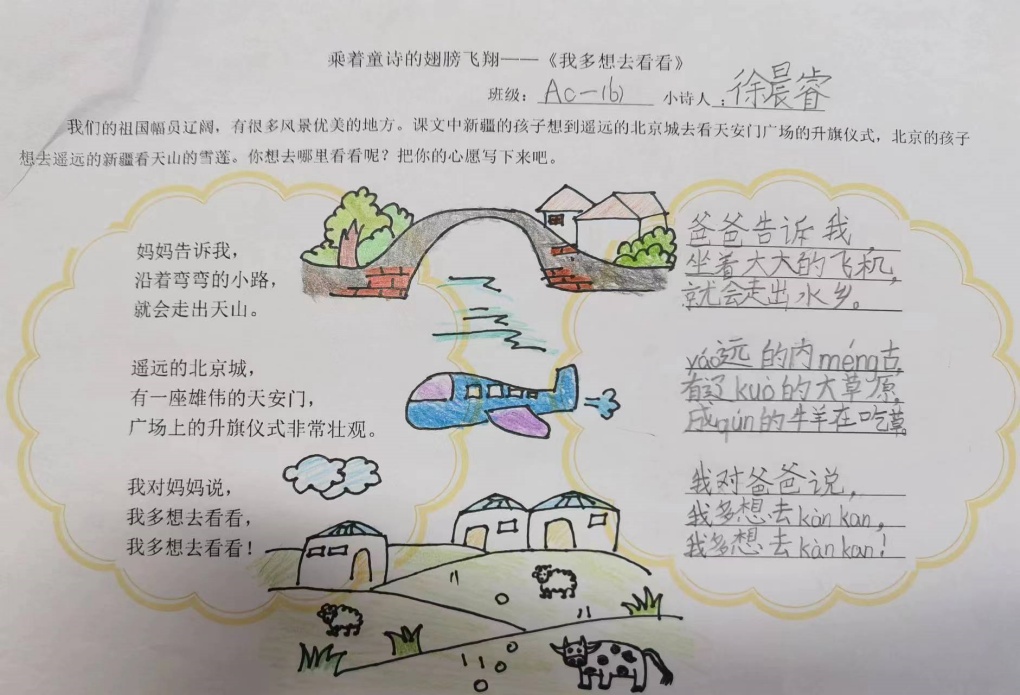 乘着童诗的翅膀飞翔——《我多想去看看》
班级：AC一(6) 小诗人：徐晨睿
我们的祖国幅员辽阔，有很多风景优美的地方。课文中新疆的孩子想到遥远的北京城去看天安门广场的升旗仪式，北京的孩子
想去遥远的新疆看天山的雪莲。你想去哪里看看呢？把你的心愿写下来吧。
妈妈告诉我，
沿着弯弯的小路，
就会走出天山。
遥远的北京城，
有一座雄伟的天安门，
广场上的升旗仪式非常壮观。
我对妈妈说，
我多想去看看，
我多想去看看！
爸爸告诉我，
坐着大大的飞机，
就会走出水乡。
yáo远的内méng古，
有辽kuò的大草原，
成qún的牛羊在吃草。
我对爸爸说，
我多想去kàn kan，
我多想去kàn kan！